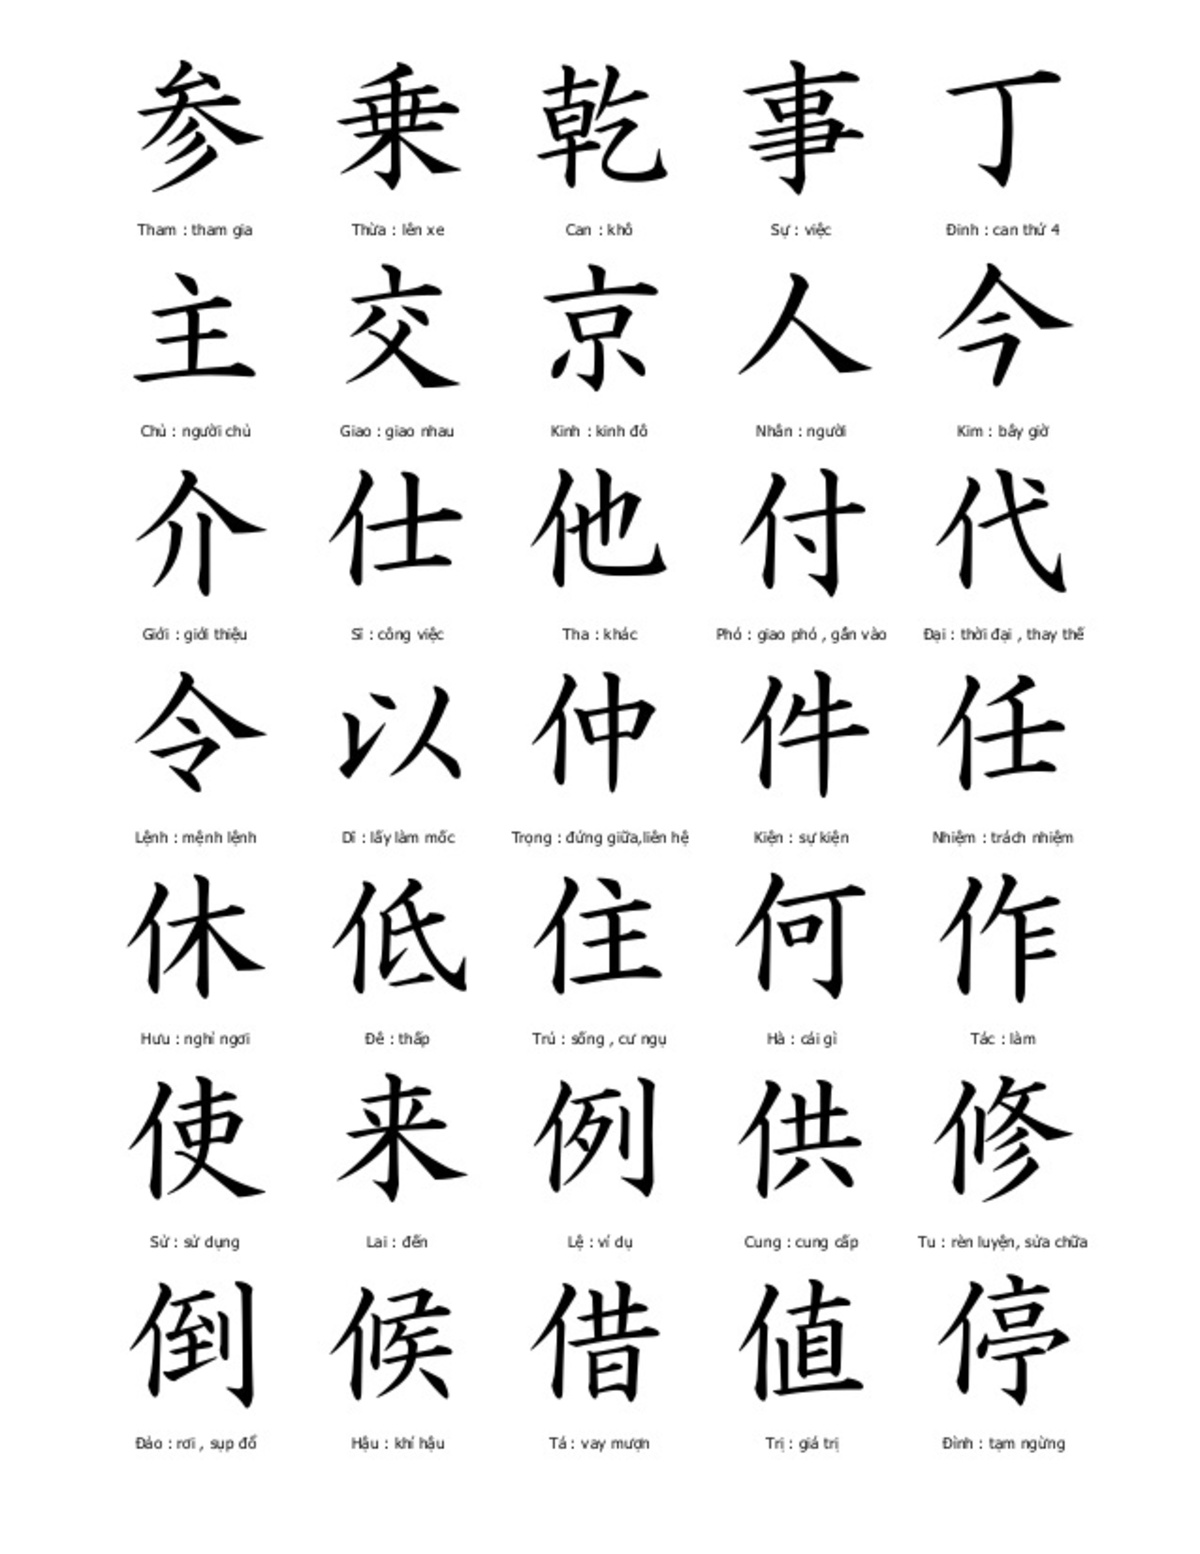 参 乗 乾 事 丁
Tham : tham gia Thừa : lên xe Can : khô Sự : việc Đinh : can thứ 4
主 交 京 人 今
Chủ : người chủ Giao : giao nhau Kinh : kinh đô Nhân : người Kim : bây giờ
介 仕 他 付 代
Giới : giới thiệu Sĩ : công việc Tha : khác Phó : giao phó , gắn vào Đại : thời đại , thay thế
令 以 仲 件 任
Lệnh : mệnh lệnh Dĩ : lấy làm mốc Trọng : đứng giữa,liên hệ Kiện : sự kiện Nhiệm : trách nhiệm
休 低 住 何 作
Hưu : nghỉ ngơi Đê : thấp Trú : sống , cư ngụ Hà : cái gì Tác : làm
使 来 例 供 修
Sử : sử dụng Lai : đến Lệ : ví dụ Cung : cung cấp Tu : rèn luyện, sửa chữa
倒 候 借 値 停
Đảo : rơi , sụp đổ Hậu : khí hậu Tá : vay mượn Trị : giá trị Đình : tạm ngừng